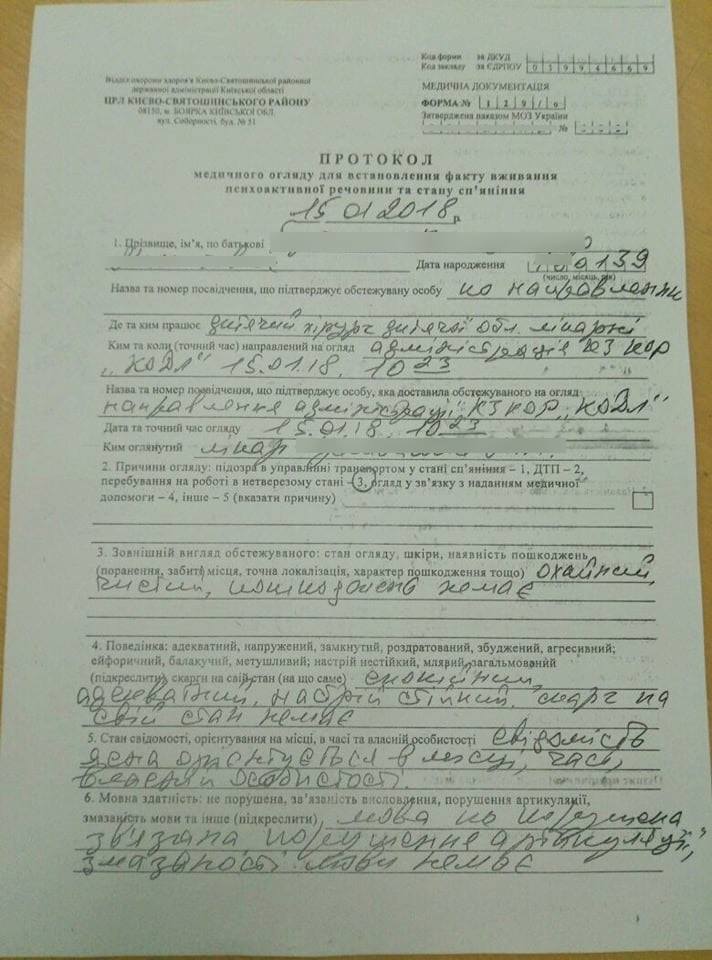 Код форми за ДКУД
Код закладу за ЄДРПОУ 03994669
Відділ охорони здоров'я Києво-Святошинської районної
державної адміністрації Київської області
ЦРЛ КИЄВО-СВЯТОШИНСЬКОГО РАЙОНУ
08150, м. БОЯРКА КИЇВСЬКОЇ ОБЛ.
вул. Соборності, буд. № 51
МЕДИЧНА ДОКУМЕНТАЦІЯ
ФОРМА № 129/о
Затверджена наказом МОЗ України
№
ПРОТОКОЛ
медичного огляду для встановлення факту вживання
психоактивної речовини та стану сп'яніння
15 01 2018 р.
1. Прізвище, ім'я, по батькові
Дата народження
(число, місяць, рік)
Назва та номер посвідчення, що підтверджує обстежувану особу по направленню
Де та ким працює дитячий хірург дитячої обл. лікарні
Ким та коли (точний час) направлений на огляд адміністрація КЗ КОР
"КОДЛ" 15.01.18. 10 23
Назва та номер посвідчення, що підтверджує особу, яка доставила обстежуваного на огляд
направлення адміністрації КЗ КОР "КОДЛ"
Дата та точний час огляду 15.01.18. 10 23
Ким оглянутий лікар
2. Причини огляду: підозра в управлінні транспортом у стані сп'яніння – 1, ДТП – 2,
перебування на роботі в нетверезому стані – 3, огляд у зв'язку з наданням медичної
допомоги – 4, інше – 5 (вказати причину)
3. Зовнішній вигляд обстежуваного: стан огляду, шкіри, наявність пошкоджень
(поранення, забиті місця, точна локалізація, характер пошкодження тощо) охайний,
чистий, пошкоджень немає
4. Поведінка: адекватний, напружений, замкнутий, роздратований, збуджений, агресивний;
ейфоричний, балакучий, метушливий; настрій нестійкий, млявий, загальмований
(підкреслити), скарги на свій стан (на що саме) спокійний,
адекватний, настрій стійкий, скарг на
свій стан немає
5. Стан свідомості, орієнтування на місці, в часі та власній особистості свідомість
ясна орієнтується в місці, часі,
власній особистості.
6. Мовна здатність: не порушена, зв'язаність висловлення, порушення артикуляції,
змазаність мови та інше (підкреслити) мова не порушена
зв'язана порушення артикуляції,
змазаності мови немає